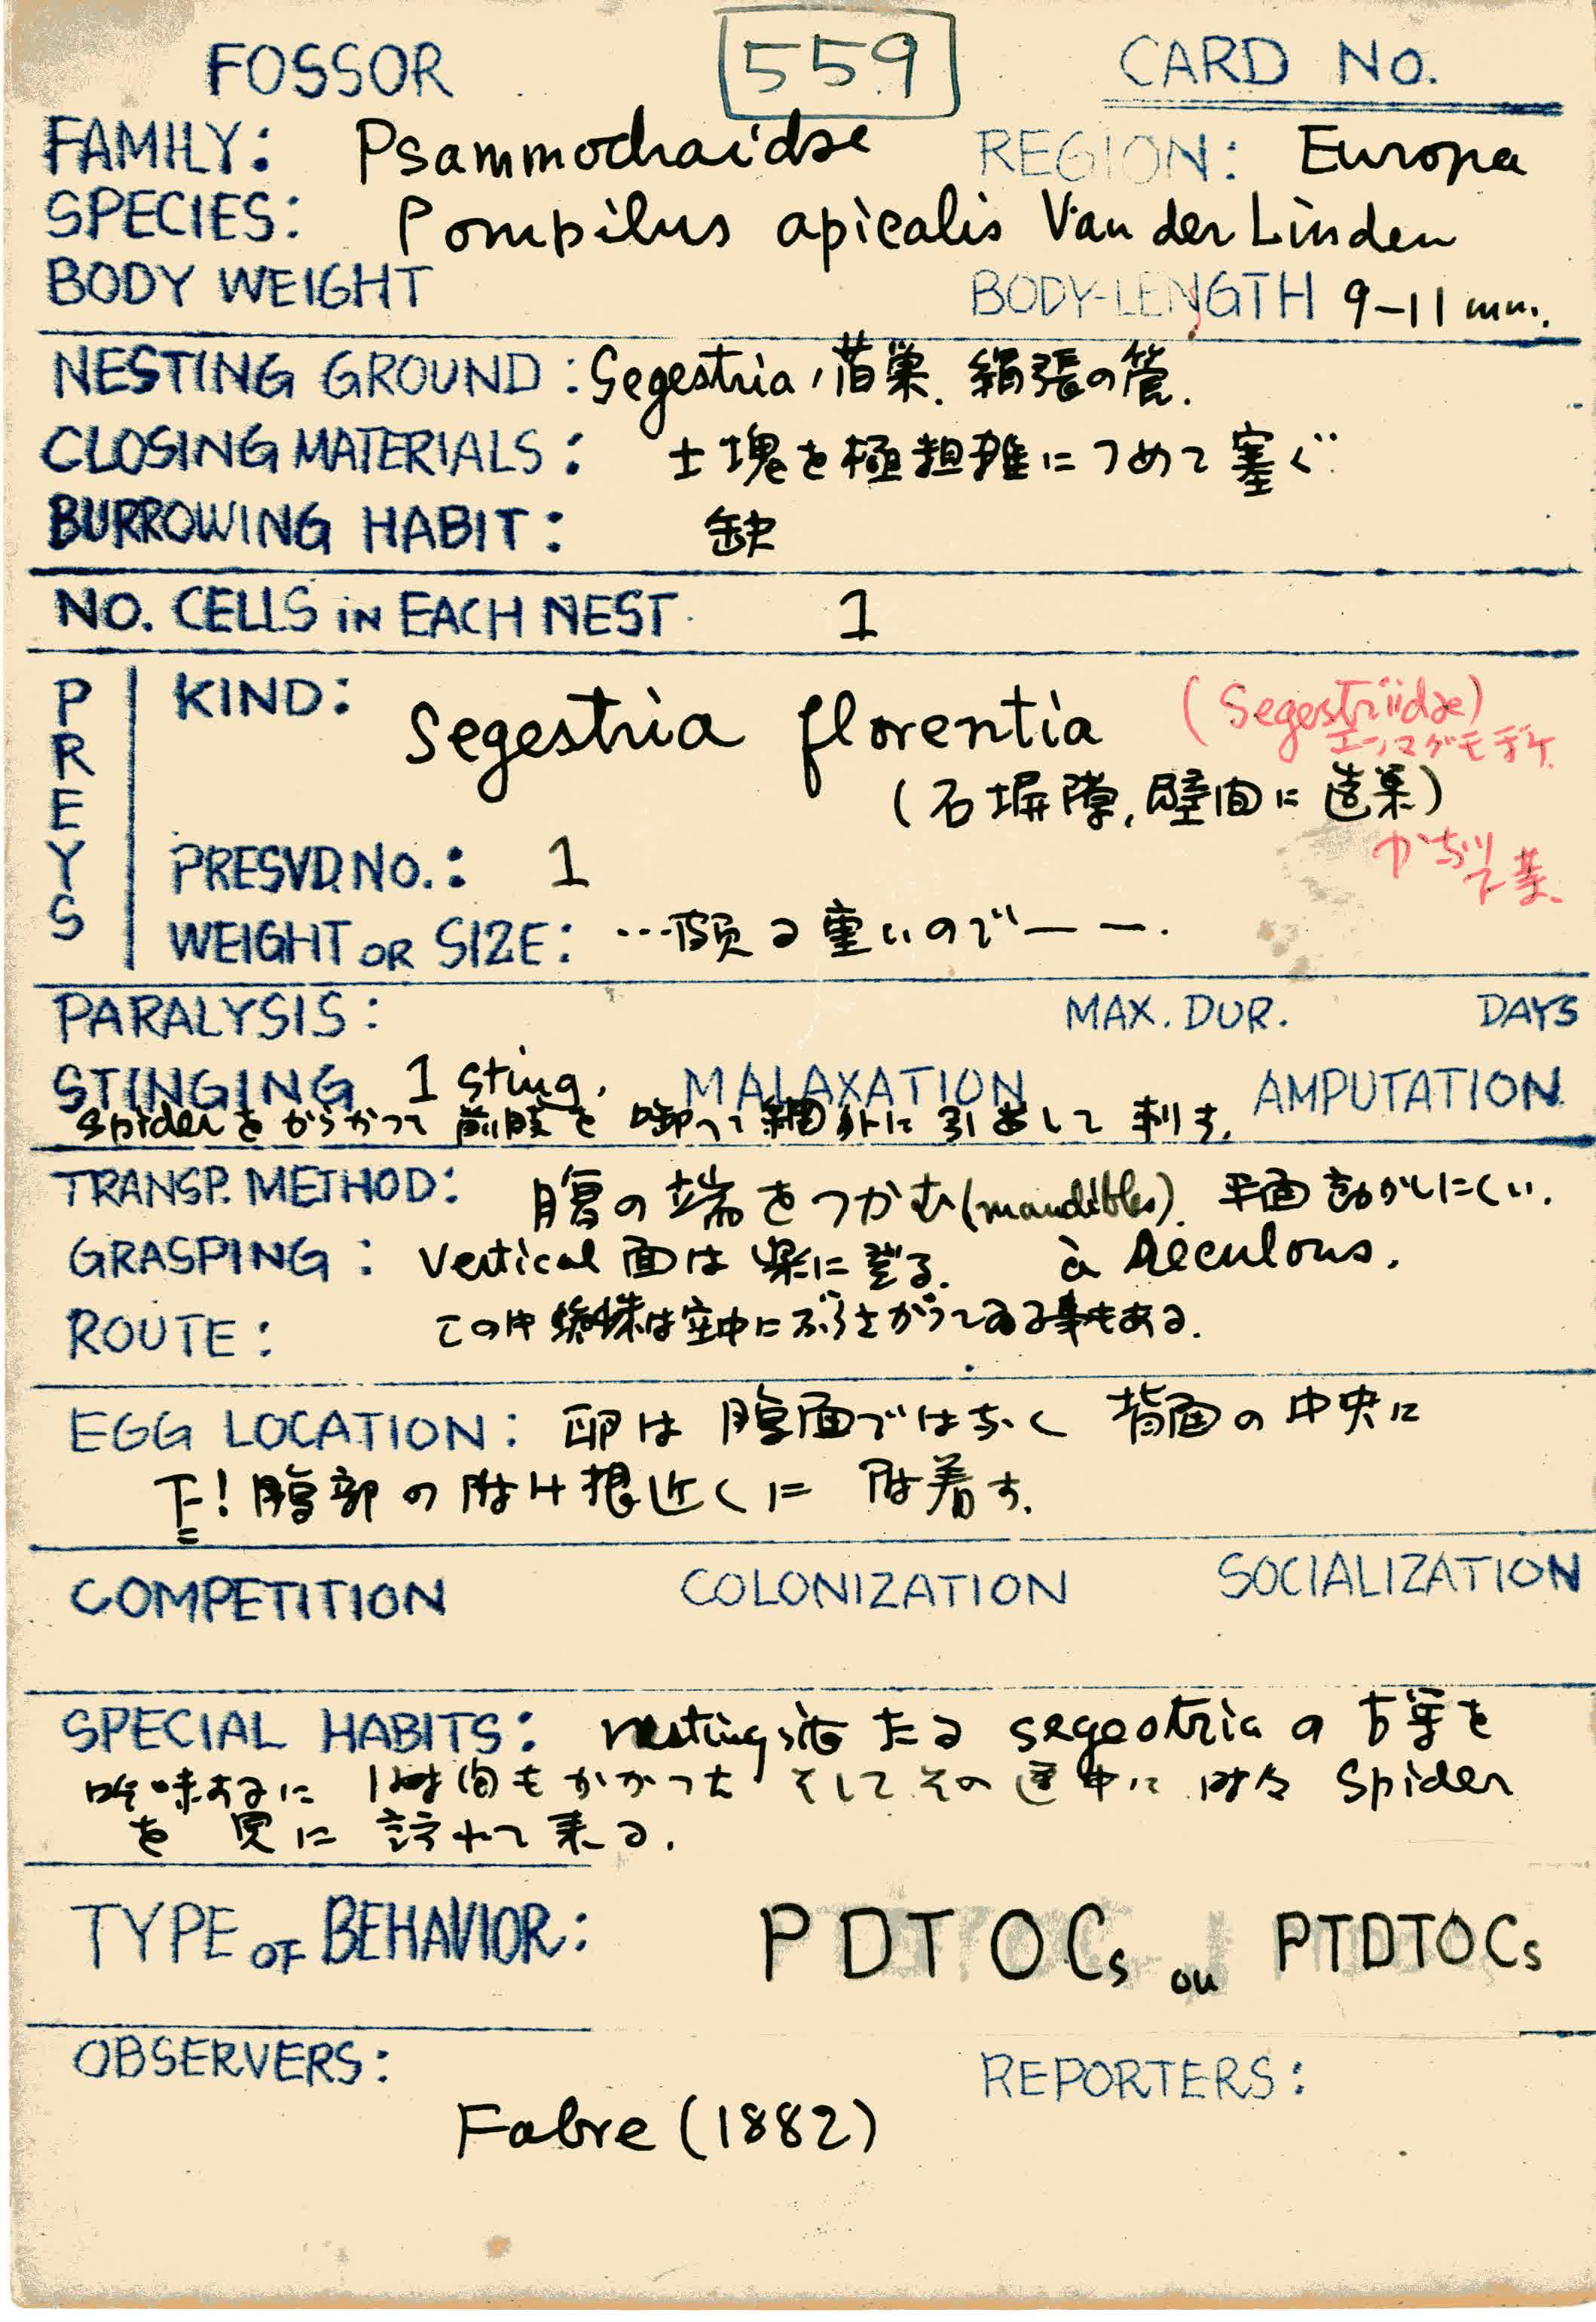 FOSSOR 559 CARD No.
FAMILY: Psammocharidae REGION: Europa
SPECIES: Pompilus apicalis Van der Linden
BODY WEIGHT BODY-LENGTH 9-11 mm.
NESTING GROUND: Segestria ノ旧巣. 絹張の管.
CLOSING MATERIALS: 土塊を極粗雑につめて塞ぐ
BURROWING HABIT: 缺
NO. CELLS IN EACH NEST 1
PREYS
KIND: Segestria florentia (Segestriidae)
エンマグモモドキ
(石塀隙, 壁面に造巣)
PRESVD. NO.: 1
WEIGHT OR SIZE: …頗る重いので——.
PARALYSIS: MAX. DUR. DAYS
STINGING 1 sting. MALAXATION AMPUTATION
spiderをからかって前肢を啣へて網外に引出して刺す.
TRANSP. METHOD: 腹の端をつかむ(mandibles). 平面動かしにくい.
GRASPING: Vertical 面は楽に登る. à reculons.
ROUTE: この時蜘蛛は空中にぶらさがってゐる事もある.
EGG LOCATION: 卵は腹面ではなく 背面の中央に
下! 腹部の附け根近くに 附着す.
COMPETITION COLONIZATION SOCIALIZATION
SPECIAL HABITS: nesting site たる segestria の古巣を
吟味するに 1時間もかかった そしてその途中に 時々 spider
を 見に 訪れて来る.
TYPE OF BEHAVIOR: PDTOCs ou PTDTOCs
OBSERVERS: REPORTERS:
Fabre (1882)